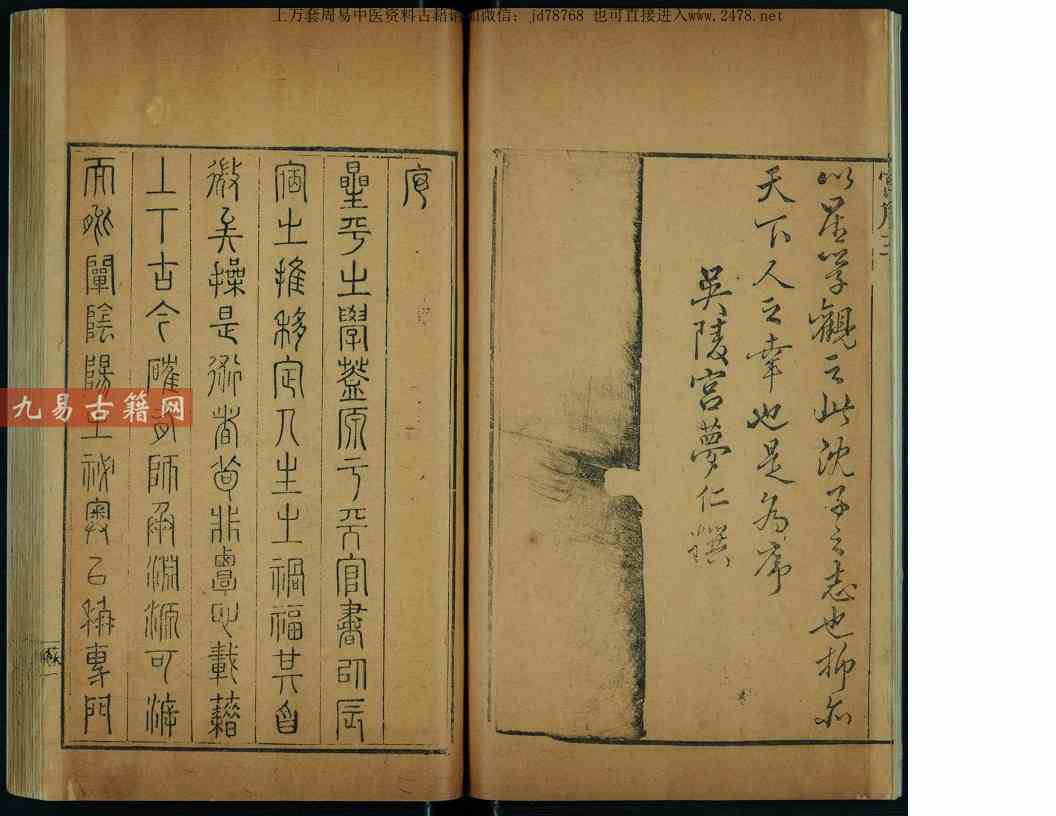 上万套周易中医资料古籍请加微信：jd78768 也可直接进入www.2478.net
宮序二
以星學觀之此沈子之志也抑亦
天下人之幸也是為序
吳陵宮夢仁撰
序
星平之學蓋原于天官書以辰
宿之推移定人生之禍福其旨
微矣操是術者苟非盡心載籍
上下古今確有師承淵源可泝
而欲闡陰陽之祕奧以稱專門
九易古籍网